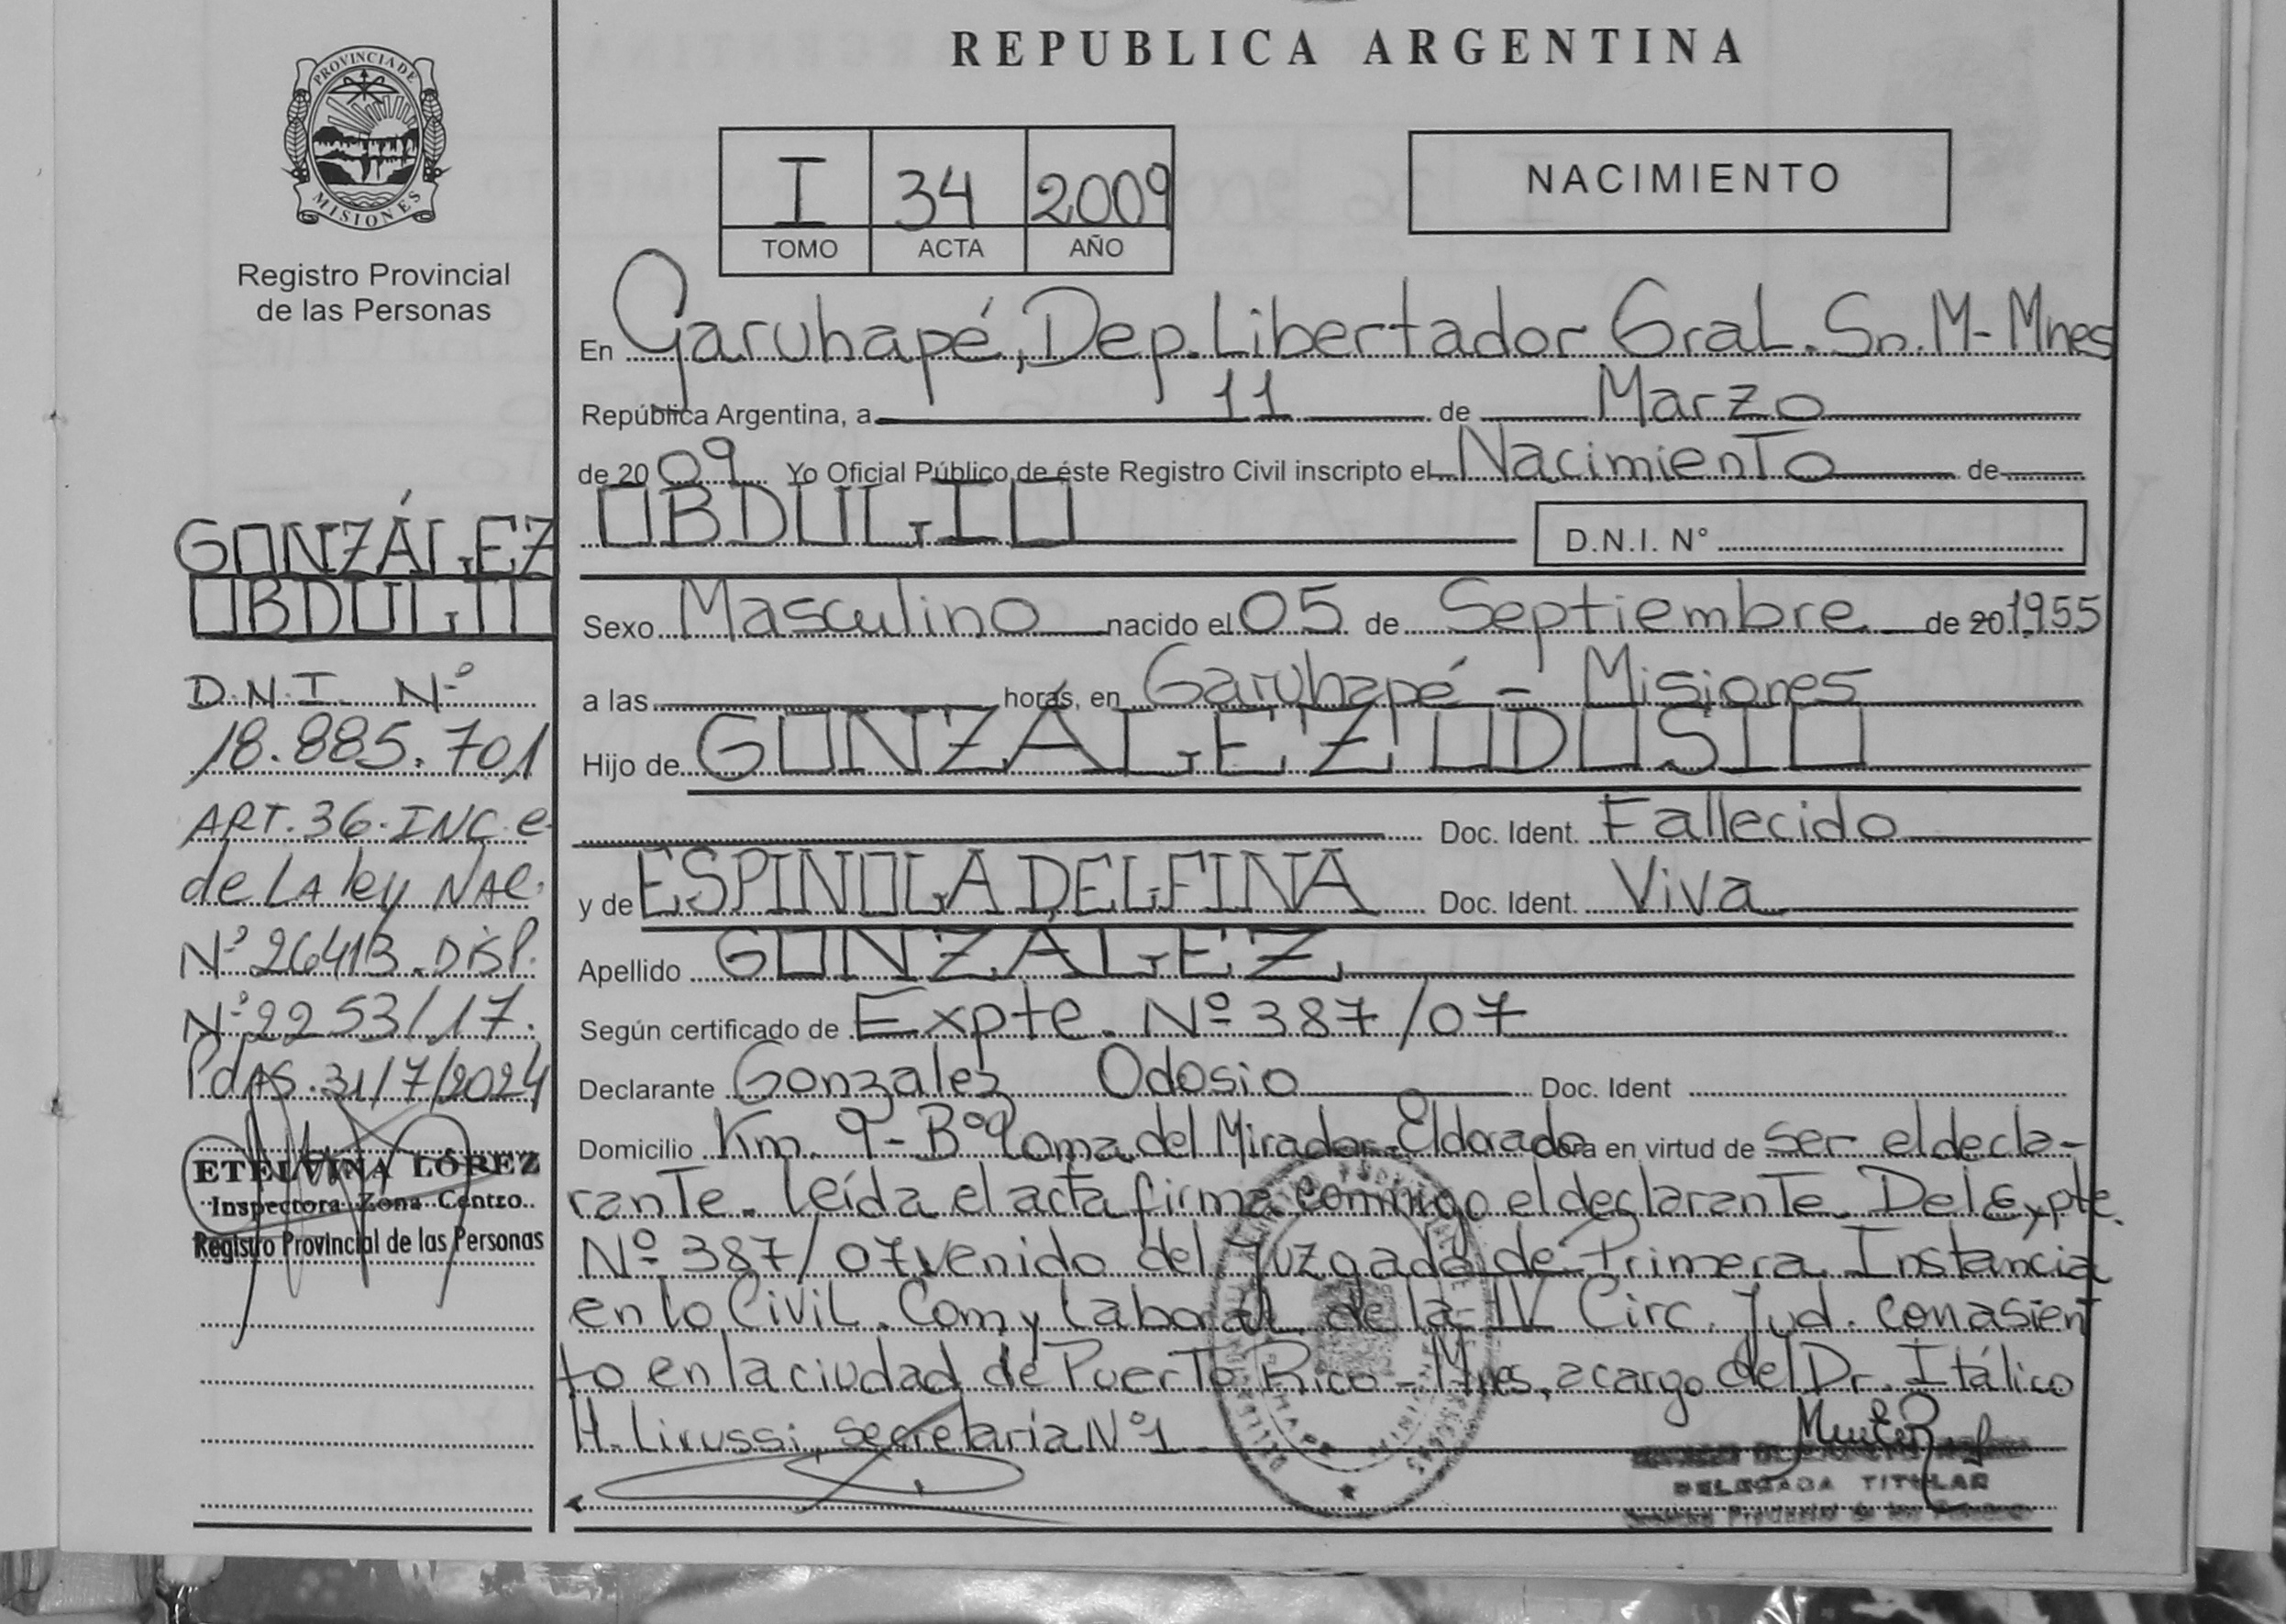 REPUBLICA ARGENTINA
PROVINCIA DE
MISIONES
Registro Provincial
de las Personas
I 34 2009
TOMO ACTA AÑO
NACIMIENTO
En Garuhapé, Dep. Libertador Gral. Sn. M- Mnes
República Argentina, a 11 de Marzo
de 20 09 Yo Oficial Público de éste Registro Civil inscripto el Nacimiento de
OBDULIO D.N.I. N°
Sexo Masculino nacido el 05 de Septiembre de 20 1955
a las horas, en Garuhapé - Misiones
Hijo de GONZÁLEZ ODOSIO
Doc. Ident. Fallecido
y de ESPINOLA DELFINA Doc. Ident. Viva
Apellido GONZÁLEZ
Según certificado de Expte. Nº 387/07
Declarante Gonzalez Odosio Doc. Ident
Domicilio Km. 9 - Bº Loma del Mirador - Eldorado obra en virtud de ser el decla-
rante. Leída el acta firma conmigo el declarante. Del Expte.
Nº 387/07 venido del Juzgado de Primera Instancia
en lo Civil. Com y Laboral de la IV Circ. Jud. con asien
to en la ciudad de Puerto Rico - Mnes, a cargo del Dr. Itálico
H. Lirussi, secretaría Nº 1
DELEGADA TITULAR
GONZÁLEZ
OBDULIO
D.N.I. Nº
18.885.701
ART. 36. INC e
de LA ley NAC.
Nº 26413. DISP.
Nº 2253/17.
PdAS. 31/7/2024
ETELVINA LÓPEZ
Inspectora Zona Centro
Registro Provincial de las Personas